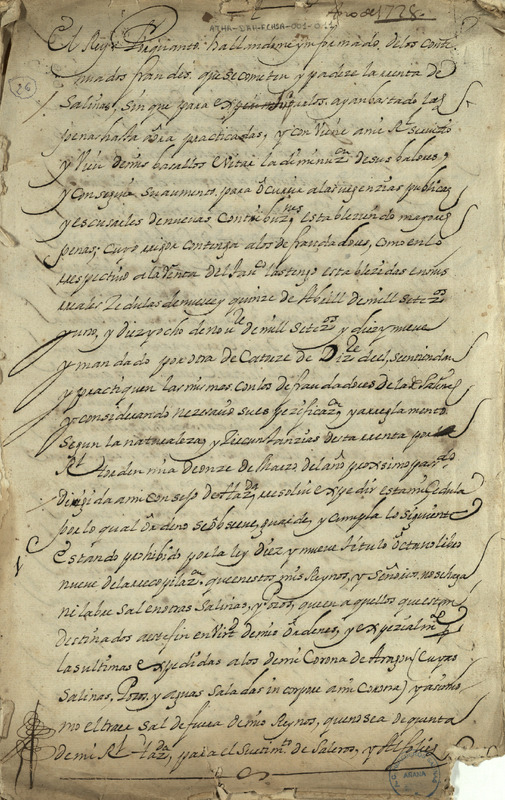 Año de 1728.
ATHA-DAH-FCHSA-001-012
(26)
El Rey= Por quanto hallandome ynformado, delos conti
nuados fraudes, que se cometen y padeze la renta de
Salinas, sin que para extinguirlos, ayan bastado las
penas hasta aora practicadas, y Conviene ami Rl servicio
y vien demis basallos evitar la diminuzn de sus balores,
y Conseguir su aumento, para ocurrir alas urgencias publicas
y escusarles de nuevas Contribuznes estableziendo mayores
penas; Cuyo rigor contenga alos defraudadores, como en lo
respectivo ala Renta del Tavco las tengo establezidas en mis
reales Zedulas de nueve y quinze de Abrill de mill setezos
y uno, y diez y ocho de nove de mill setezos y diez y nueve
y mandado por otra de Catorze de Dizre del, se entiendan
y practiquen las mismas con los defraudadores de la de Salinas
y considerando nezesario su espezificazn y arreglamento
segun la naturaleza, y Zircunstanzias desta renta por
Rl orden mia de onze de Marzo del año proximo pasado
dirigida ami Consejo de Hazda, resolvi expedir esta mi Zedula
por lo qual ordeno se observe, guarde, y cumpla lo siguiente
1 Estando prohibido por la ley diez y nueve titulo octavo libro
nueve dela recopilazn, que en estos mis Reynos, y Señorios, no se haga
ni labre sal en otras Salinas, y Pozos, que en aquellos que estan
Destinados a este fin en Virtd de mis ordenes, y expezialmte
las ultimas expedidas alos demi Corona de Aragon (Cuyas
Salinas, Pozos, y aguas Saladas incorpore ami Corona) y asimis
mo el traer sal de fuera demis Reynos, que no sea de quenta
de mi Rl Hazda, para el surtimto de Saleros, y Alfolies
ARABA